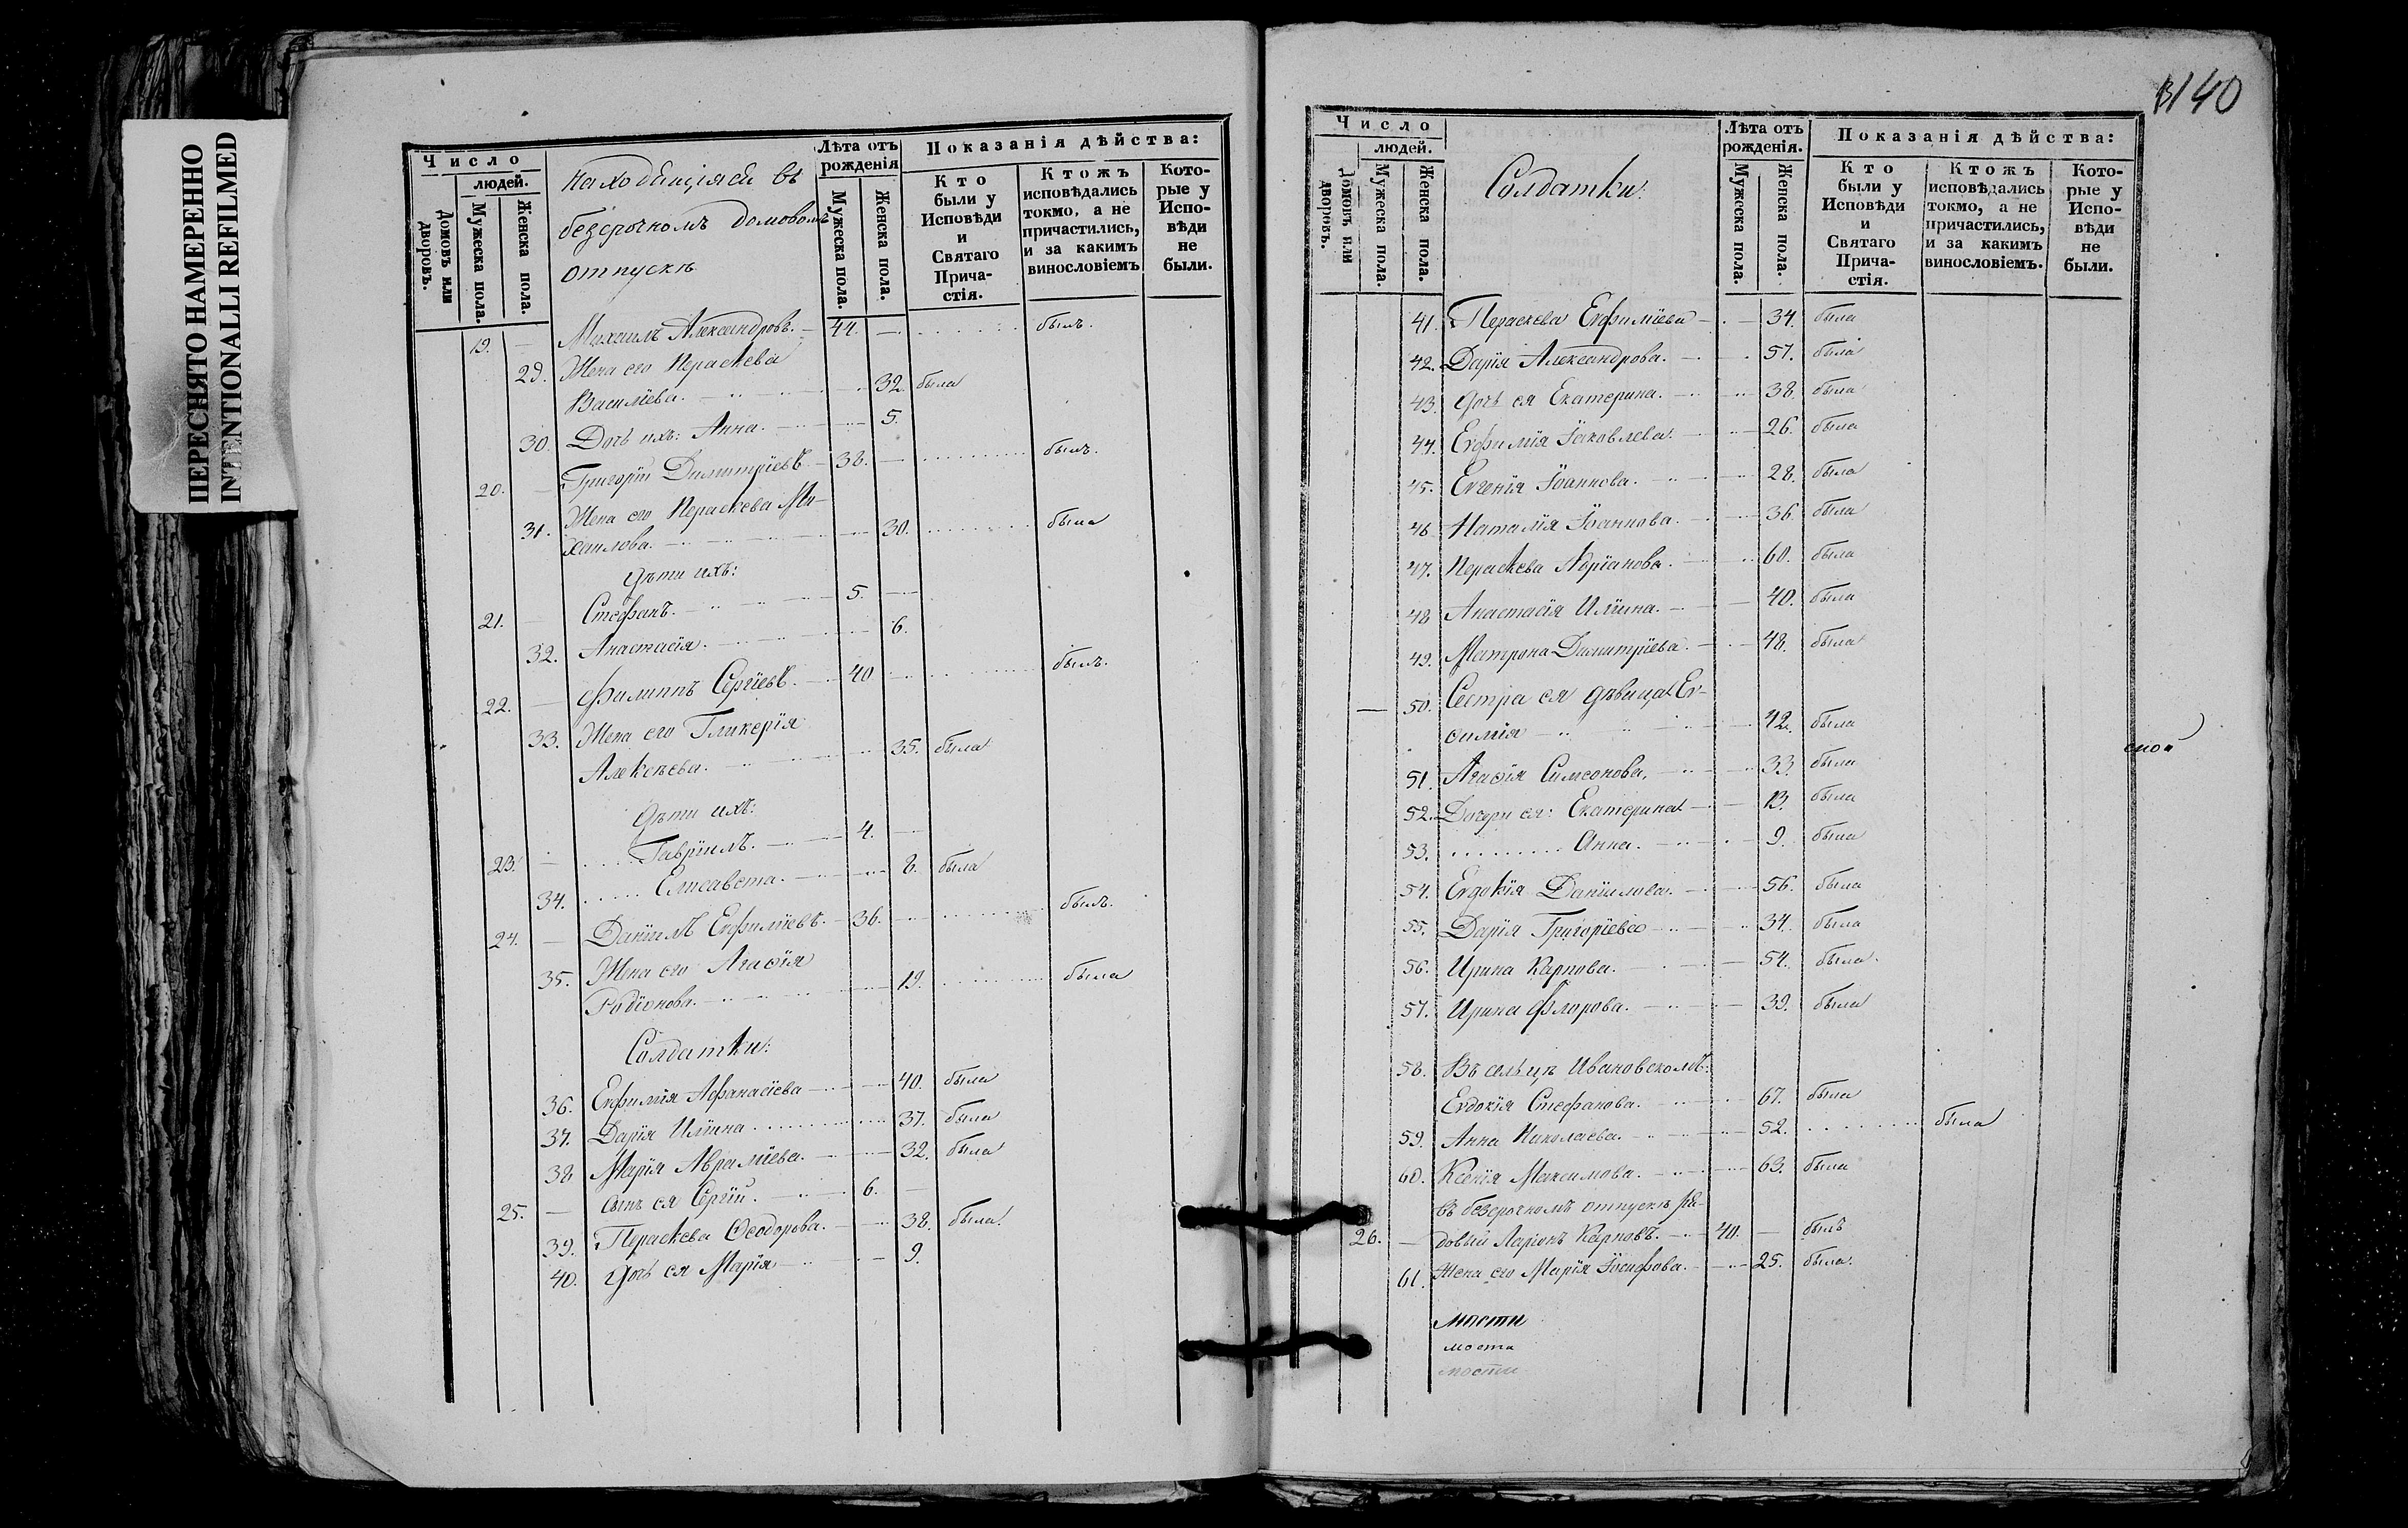 ПЕРЕСНЯТО НАМЕРЕННО
INTENTIONALLI REFILMED
Число
людей.
Домовъ или дворовъ.
Мужеска пола.
Женска пола.
Находящіяся въ
безсрочномъ домовомъ
отпускѣ
Лѣта отъ рожденія
Мужеска пола.
Женска пола.
Показанія дѣйства:
Кто были у Исповѣди и Святаго Прича-стія.
Ктожъ исповѣдались токмо, а не причастились, и за какимъ винословіемъ
Кото-рые у Испо-вѣди не были.
19. — Михаилъ Александровъ. — 44. — былъ.
29. Жена его Параскева
Василіева. — 32. была
30. Дочь ихъ: Анна. — 5.
20. — Григорій Димитріевъ — 38. — былъ.
31. Жена его Параскева Ми-
хаилова. — 30. была
Дѣти ихъ:
21. — Стефанъ. — 5. —
32. Анастасія. — 6.
22. — Филиппъ Сергіевъ. — 40 — былъ.
33. Жена его Гликерія
Алексѣева. — 35. была
Дѣти ихъ:
23. — Гавріилъ. — 4. —
34. Елисавета. — 8. была
24. — Даніилъ Евфиміевъ. — 36. — былъ.
35. Жена его Агафія
Родіонова. — 19. была
Солдатки:
36. Евфимія Афанасіева — 40. была
37. Дарія Иліина 37. была
38 Марія Авраміева. — 32. была
25. — сынъ ея Сергій. — 6. —
39. Параскева Ѳеодорова. — 38. была.
40. Дочь ея Марія — 9.
140
Число
людей.
Домовъ или дворовъ.
Мужеска пола.
Женска пола.
Солдатки:
Лѣта отъ рожденія.
Мужеска пола.
Женска пола.
Показанія дѣйства:
Кто были у Исповѣди и Святаго Прича-стія.
Ктожъ исповѣдались токмо, а не причастились, и за какимъ винословіемъ.
Кото-рые у Испо-вѣди не были.
41. Параскева Евфиміева — 34. была
42. Дарія Александрова. — 57. была
43. Дочь ея Екатерина. — 38. была
44. Евфимія Іаковлева. — 26. была
45. Евгенія Іоаннова. — 28. была
46 Наталія Іоаннова. — 36. была
47. Параскева Адріанова. — 60. была
48 Анастасія Иліина. — 40. была
49. Матрона Димитріева. — 48. была
— 50. Сестра ея дѣвица Ев-
фимія — 42. была
51. Агафія Симеонова. — 33. была
52. Дочери ея: Екатерина. — 13. была
53. Анна. — 9. была
54. Евдокія Даніилова. — 56. была
55. Дарія Григоріева — 34. была
56. Ирина Карпова. — 54. была.
57. Ирина Флорова. — 39. была
58. Въ сельцѣ Ивановскомъ:
Евдокія Стефанова. — 67. была
59. Анна Николаева. — 52. была
60. Ксенія Максимова. — 63. была
въ безсрочномъ отпускѣ ря-
26. — довый Ларіонъ Карповъ. — 40. — былъ
61. Жена его Марія Іосифова. — 25. была.